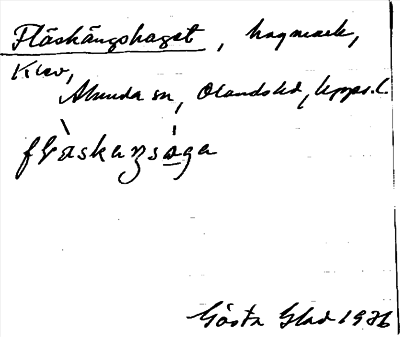 Fläskängshaget, hagmark,
Klev,
Almunda sn, Olandshd, Upps. l.
flàskaŋsága
Gösta Glad 1976